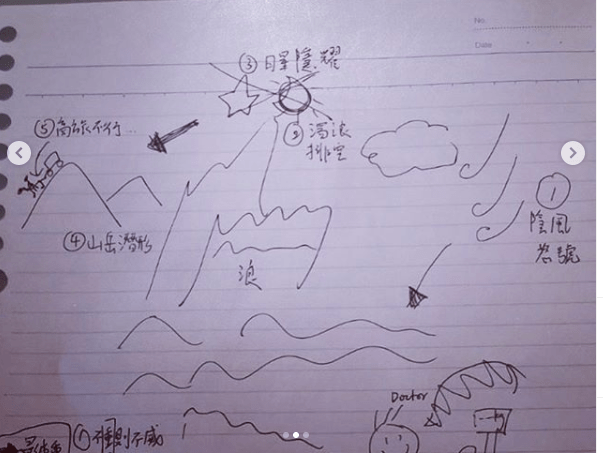 No.
Date
③日星隱耀
⑤商旅不行...
②濁浪
排空
①
陰風
怒號
④山岳潛形
浪
Doctor
①不重則不威